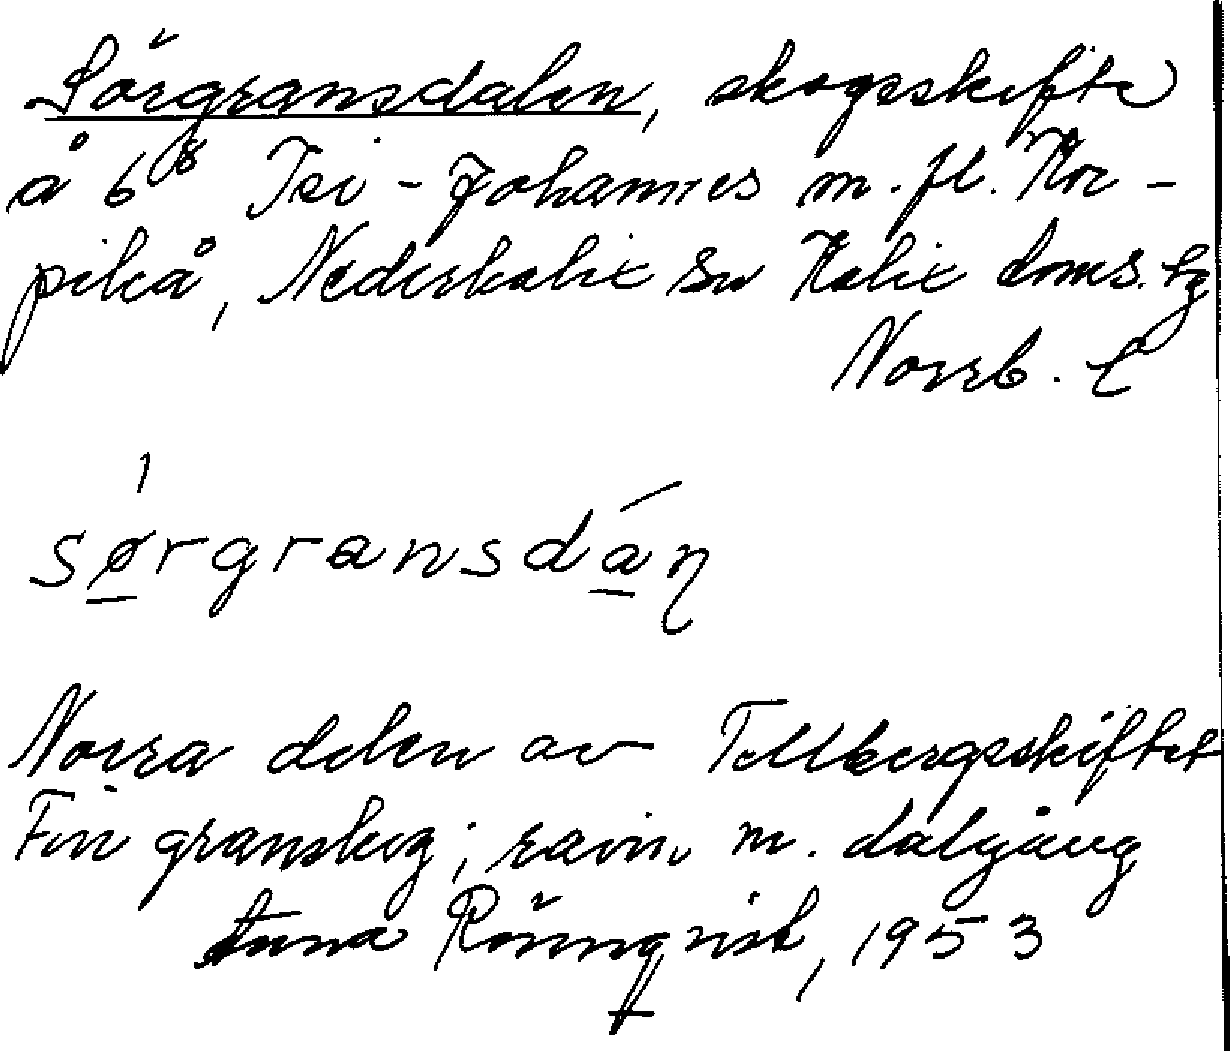 Sörgransdalen, skogsskifte
å 6⁸ Isi-Johannes m. fl. Kor-
pikå, Nederkalix sn Kalix doms. tg
Norrb. l
sørgransdan
Norra delen av Tellbergsskiftet
Fin granskog; ravin m. dalgång
Anna Rönnqvist, 1953